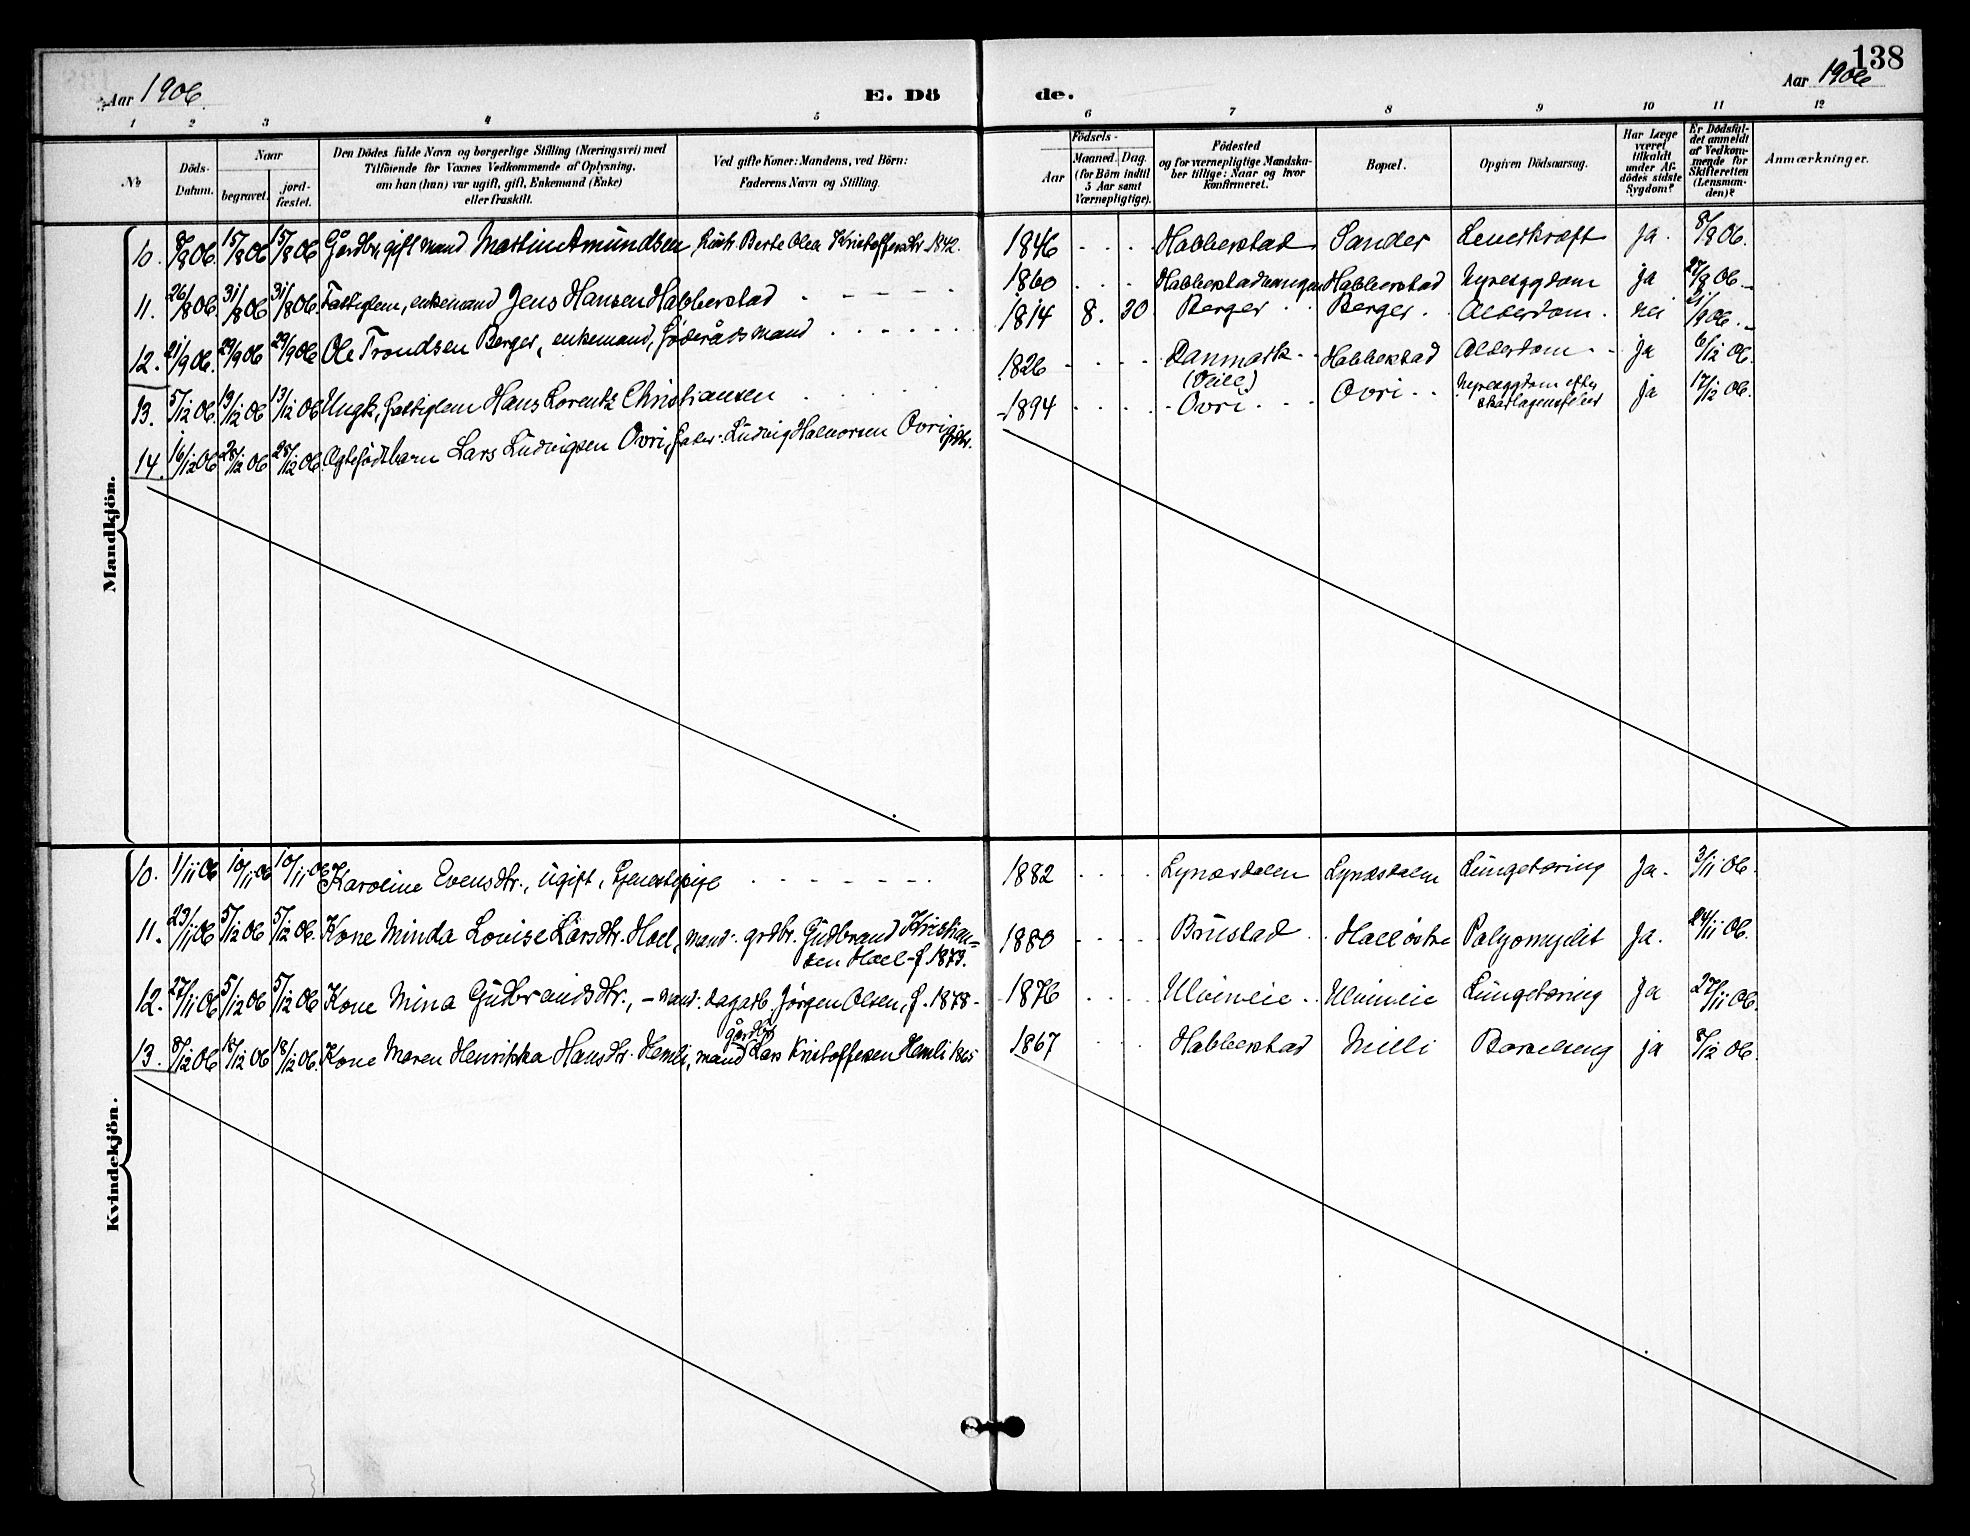 138
Aar 1906. E. Dö de. Aar 1906
1 2 3 4 5 6 7 8 9 10 11 12
No
Döds-Datum.
Naar
begravet.
jord-fæstet.
Den Dödes fulde Navn og borgerlige Stilling (Næringsvei) med
Tilföiende for Voxnes Vedkommende af Oplysning,
om han (hun) var ugift, gift, Enkemand (Enke)
eller fraskilt.
Ved gifte Koner: Mandens, ved Börn:
Faderens Navn og Stilling.
Födsels-
Aar
Maaned. Dag.
(for Börn indtil
5 Aar samt
Værnepligtige).
Födested
og for værnepligtige Mandska-
ber tillige: Naar og hvor
konfirmeret.
Bopæl.
Opgiven Dödsaarsag.
Har Læge
været
tilkaldt
under Af-
dödes sidste
Sygdom?
Er Dödsfal-
det anmeldt
af Vedkom-
mende for
Skifteretten
(Lensman-
den)?
Anmærkninger.
Mandkjön.
10. 8/8 06. 15/8 06 15/8 06 Gårdbr, gift mand Martin Amundsen, Berte Olea Kristoffersdtr. 1842. 1846 - - - Habberstad Sander Leverkræft ja. 8/8 06.
11. 26/8 06. 31/8 06 31/8 06. Fattiglem, enkemand Jens Hansen Habberstad - - - - - 1860 - - - Habberstad Nyresygdom ja 27/8 06.
12. 21/9 06. 29/9 06 29/9 06 Ole Trondsen Berger, enkemand, föderådsmand - - - - - 1814 8. 30 Berger Berger Alderdom nei 21/9 06.
13. 5/12 06. 13/12 06 13/12 06 Ungk, fattiglem Hans Lorentz Christiansen 1826 - - - - Danmark (Veile) Habberstad Alderdom ja 6/12 06.
14. 16/12 06 28/12 06 28/12 06. Ægtefödt barn Lars Ludvigsen Ovri, fader: Ludvig Halvorsen Ovri, grdbr. 1894 - - - - Ovri Ovri Nyresygdom efter skarlagensfeber ja 17/12 06.
Kvindekjön.
10. 1/11 06 10/11 06 10/11 06 Karoline Evensdtr., ugift, tjenestepige - - - - - - - 1882 - - - - Lynæsdalen Lynæsdalen Lungetæring Ja. 3/11 06.
11. 23/11 06 5/12 06 5/12 06. Kone Minda Lovise Larsdtr. Hoel, mand: grdbr. Gudbrand Kristian-
sen Hoel f. 1873. 1880 - - - - Brustad Hoel östre ja. 24/11 06.
12. 27/11 06 5/12 06 5/12 06 Kone Mina Gudbrandsdtr., - mand: dagarb. Jörgen Olsen, f. 1878 - 1876 - - - - Ulvineie Ulvineie Lungetæring ja 27/11 06.
13. 8/12 06 18/12 06 18/12 06. Kone Maren Henrikka Hansdtr. Hemli, mand gårdbr Lars Kristoffersen Hemli 1865 1867 - - - Habberstad Milli Barselseng ja 8/12 06.